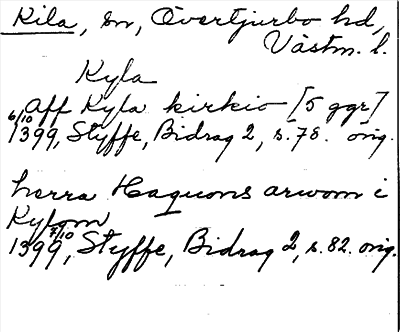 Kila, sn, Övertjurbo hd,
Västm. l.
Kyla
aff Kyla kirkio [5 ggr]
6/10 1399, Styffe, Bidrag 2, s. 78. orig.
herra Haquons arwom i
Kylom
7/10 1399, Styffe, Bidrag 2, s. 82. orig.